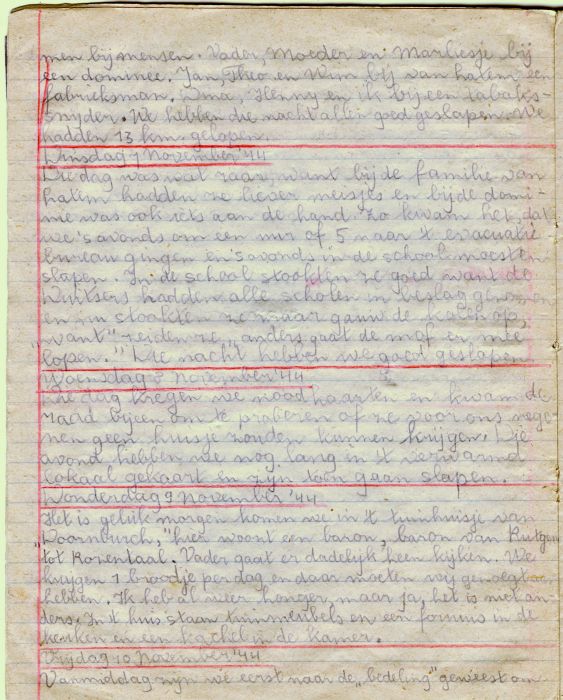 men bij mensen. Vader, Moeder en Marliesje bij
een dominee. Jan, Theo en Wim bij van hatem een
fabrieksman. Oma, Henny en ik bij een tabaks-
snyder. We hebben die nacht allen goed geslapen. We
hadden 13 km gelopen.
Dinsdag 7 November '44
Die dag was wat raar, want bij de familie van
hatem hadden ze liever meisjes en bij de domi-
nie was ook iets aan de hand. Zo kwam het, dat
we 's avonds om een uur of 5 naar 't evacuatie
bureau gingen en 's avonds in de school moesten
slapen. In de school stookten ze goed want de
Duitsers hadden alle scholen in beslag genomen
en nu stookten ze maar gauw de kolen op,
„want" zeiden ze, „anders gaat de mof er mee
lopen." Die nacht hebben we goed geslapen.
Woensdag 8 November '44
Die dag kregen we noodkaarten en kwam de
raad bijeen om te proberen of ze voor ons nege
nen geen huisje zouden kunnen krijgen. Die
avond hebben we nog lang in 't verwarmd
lokaal gekaart en zijn toen gaan slapen.
Donderdag 9 November '44
Het is gelukt, morgen komen we in 't tuinhuisje van
„Doornburch," hier woont een baron, baron van Rutgen
tot Rozentaal. Vader gaat er dadelijk heen kijken. We
krijgen 1 broodje per dag en daar moeten wij genoeg aan
hebben. Ik heb al weer honger, maar ja, het is niet an-
ders. In 't huis staan tuinmeubels en een fornuis in de
keuken en een kachel in de kamer.
Vrijdag 10 November '44
Vanmiddag zijn we eerst naar de „bedeling" geweest om